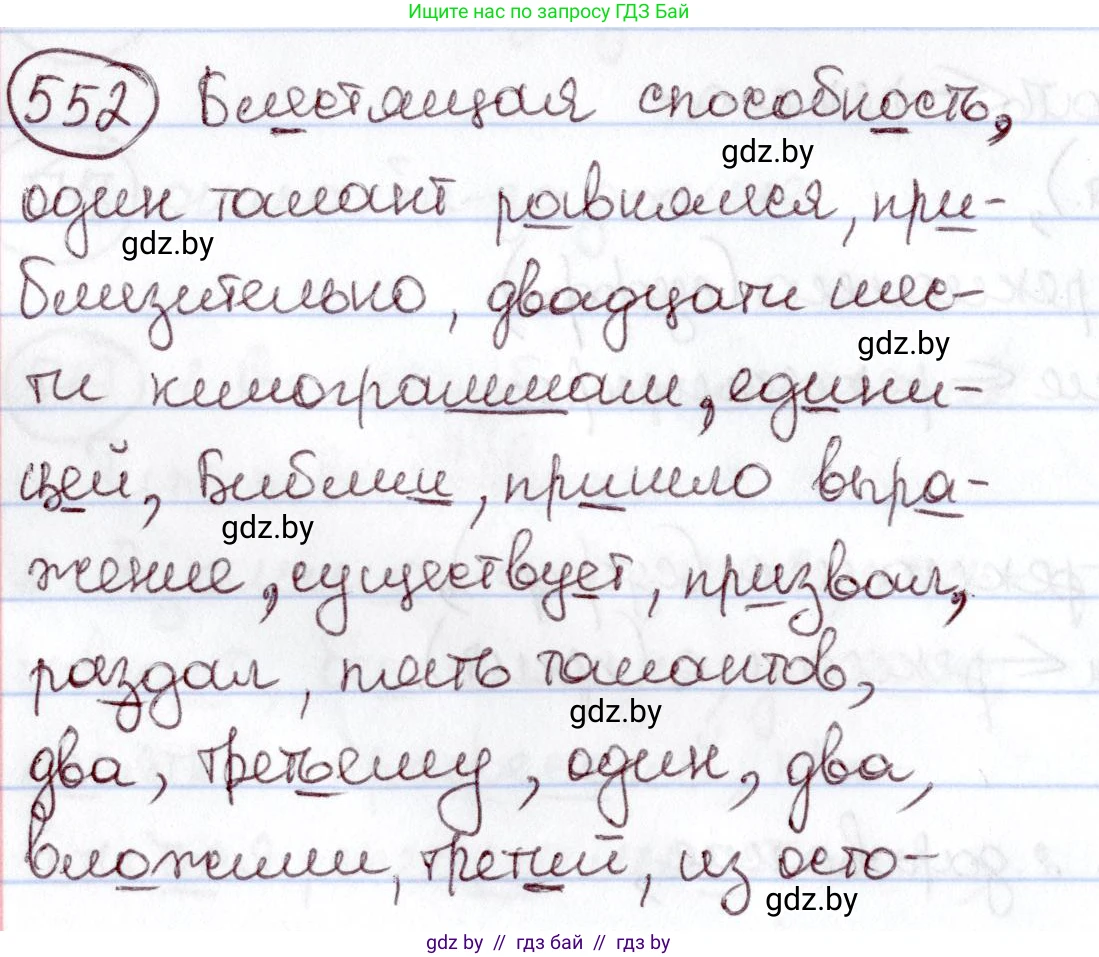 Ищите нас по запросу ГДЗ Бай
552 Блестящая способность,
gdz.by
один талант равнялся, при-
gdz.by
близительно, двадцати шес-
gdz.by
ти килограммам, едини-
цей, Библии, пришло выра-
gdz.by
жение, существует, призвал,
раздал, пять талантов,
gdz.by
два, третьему, один, два,
вложили, третий, из осто-
gdz.by
gdz by // гдз бай // гдз by